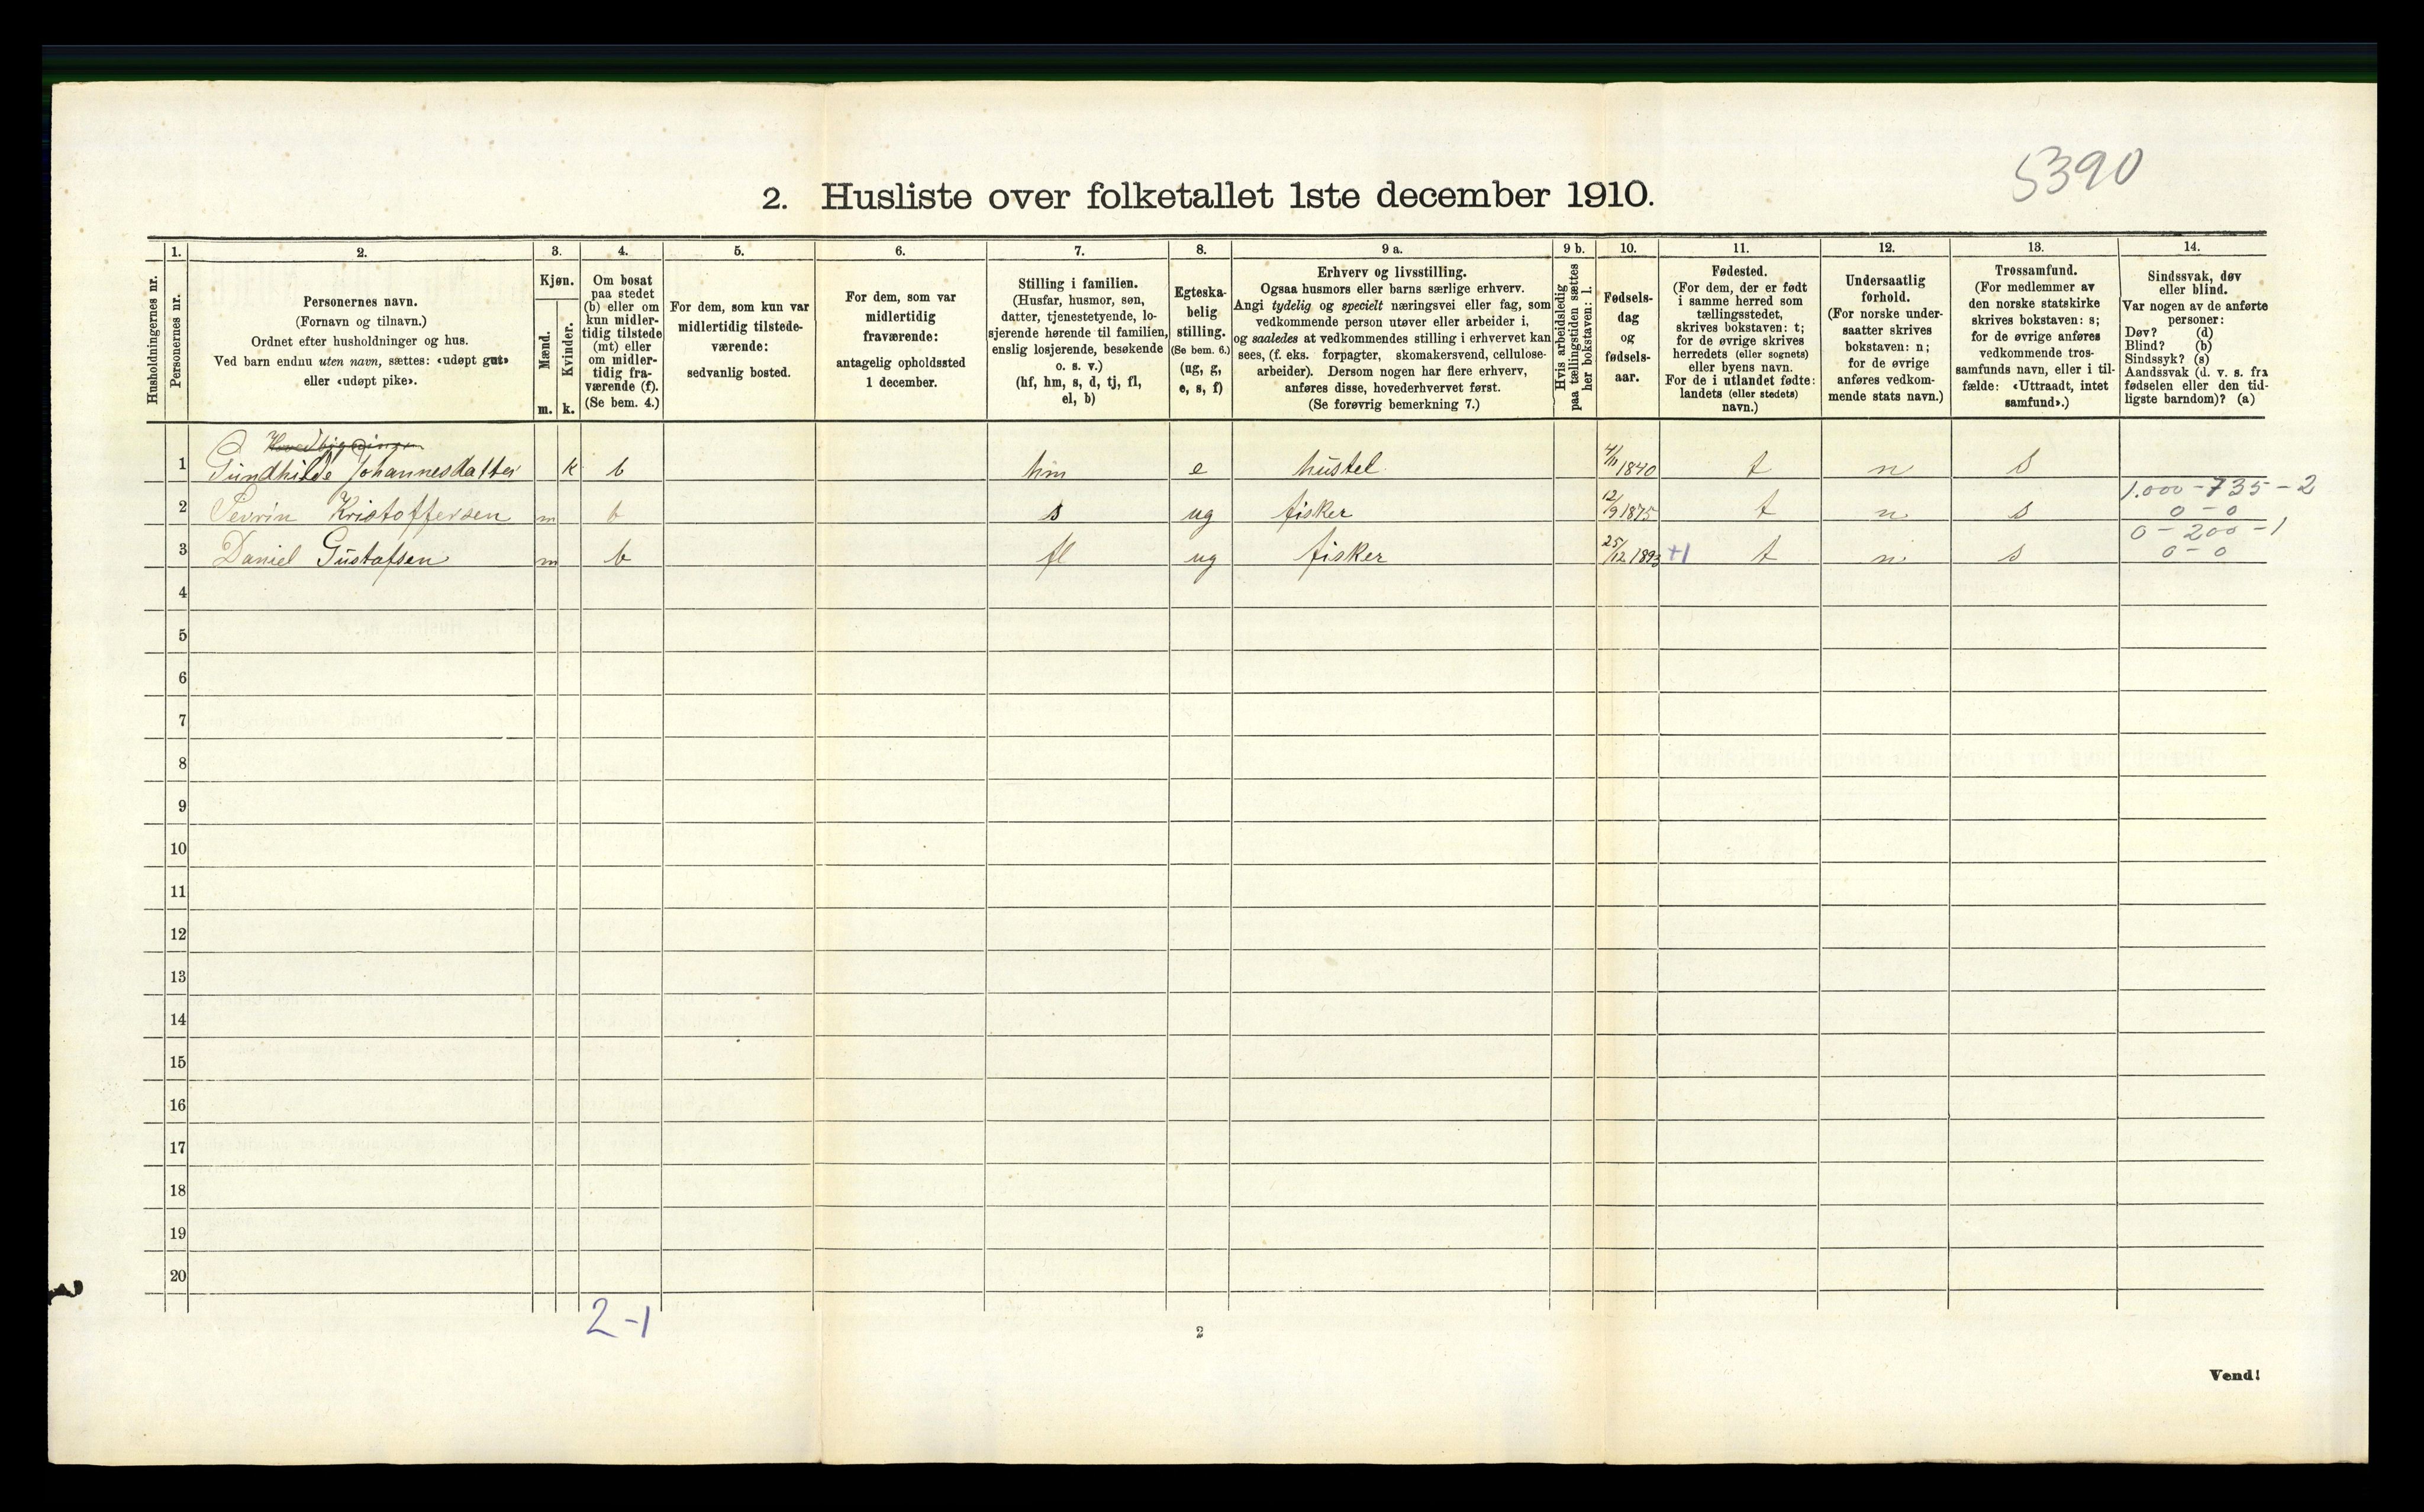 5390
2. Husliste over folketallet 1ste december 1910.
Husholdningernes nr.
1.
Personernes nr.
2.
Personernes navn.
(Fornavn og tilnavn.)
Ordnet efter husholdninger og hus.
Ved barn endnu uten navn, sættes: «udøpt gut»
eller «udøpt pike».
3.
Kjøn.
Mænd.
m.
Kvinder.
k.
4.
Om bosat
paa stedet
(b) eller om
kun midler-
tidig tilstede
(mt) eller
om midler-
tidig fra-
værende (f).
(Se bem. 4.)
5.
For dem, som kun var
midlertidig tilstede-
værende:
sedvanlig bosted.
6.
For dem, som var
midlertidig
fraværende:
antagelig opholdssted
1 december.
7.
Stilling i familien.
(Husfar, husmor, søn,
datter, tjenestetyende, lo-
sjerende hørende til familien,
enslig losjerende, besøkende
o. s. v.)
(hf, hm, s, d, tj, fl,
el, b)
8.
Egteska-
belig
stilling.
(Se bem. 6.)
(ug, g,
e, s, f)
9 a.
Erhverv og livsstilling.
Ogsaa husmors eller barns særlige erhverv.
Angi tydelig og specielt næringsvei eller fag, som
vedkommende person utøver eller arbeider i,
og saaledes at vedkommendes stilling i erhvervet kan
sees, (f. eks. forpagter, skomakersvend, cellulose-
arbeider). Dersom nogen har flere erhverv,
anføres disse, hovederhvervet først.
(Se forøvrig bemerkning 7.)
9 b.
Hvis arbeidsledig
paa tællingstiden sættes
her bokstaven: l.
10.
Fødsels-
dag
og
fødsels-
aar.
11.
Fødested.
(For dem, der er født
i samme herred som
tællingsstedet,
skrives bokstaven: t;
for de øvrige skrives
herredets (eller sognets)
eller byens navn.
For de i utlandet fødte:
landets (eller stedets)
navn.)
12.
Undersaatlig
forhold.
(For norske under-
saatter skrives
bokstaven: n;
for de øvrige
anføres vedkom-
mende stats navn.)
13.
Trossamfund.
(For medlemmer av
den norske statskirke
skrives bokstaven: s;
for de øvrige anføres
vedkommende tros-
samfunds navn, eller i til-
fælde: «Uttraadt, intet
samfund».)
14.
Sindssvak, døv
eller blind.
Var nogen av de anførte
personer:
Døv? (d)
Blind? (b)
Sindssyk? (s)
Aandssvak (d. v. s. fra
fødselen eller den tid-
ligste barndom)? (a)
1 Gundhilde Johannesdatter k b hm e hustel 1840 t n s
1.000 - 735 - 2
2 Sevrin Kristoffersen m b s ug fisker 12/9 1875 t n s 0 - 0
0 - 200 - 1
3 Daniel Gustafsen m b fl ug fisker 25/12 1893 +1 t n s 0 - 0
4
5
6
7
8
9
10
11
12
13
14
15
16
17
18
19
20
2-1
2
Vend!